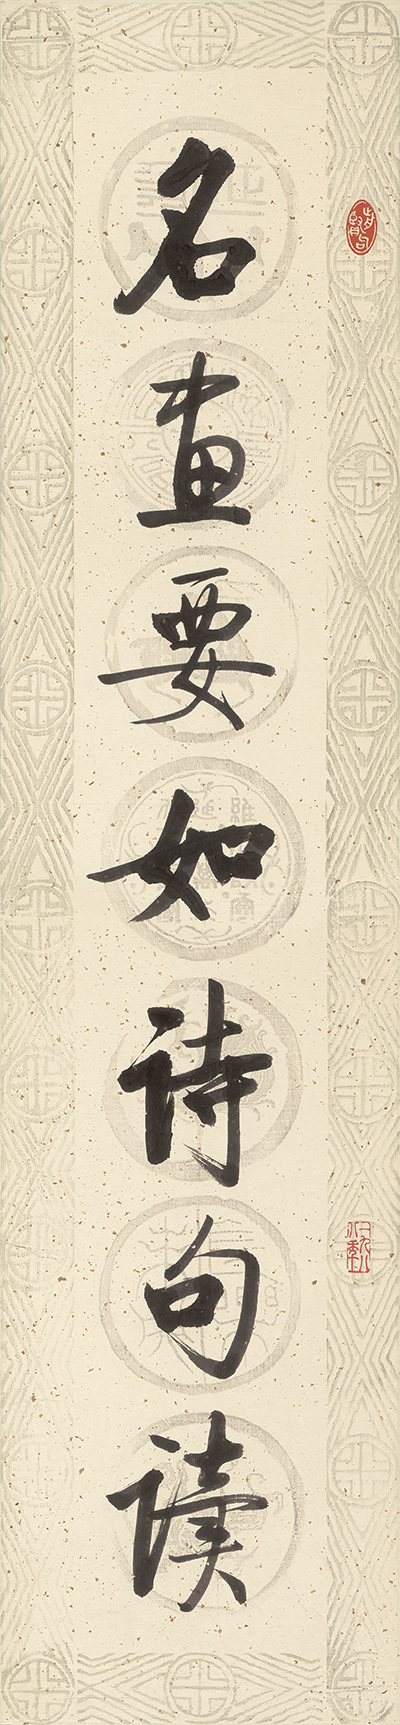 名画要如诗句读